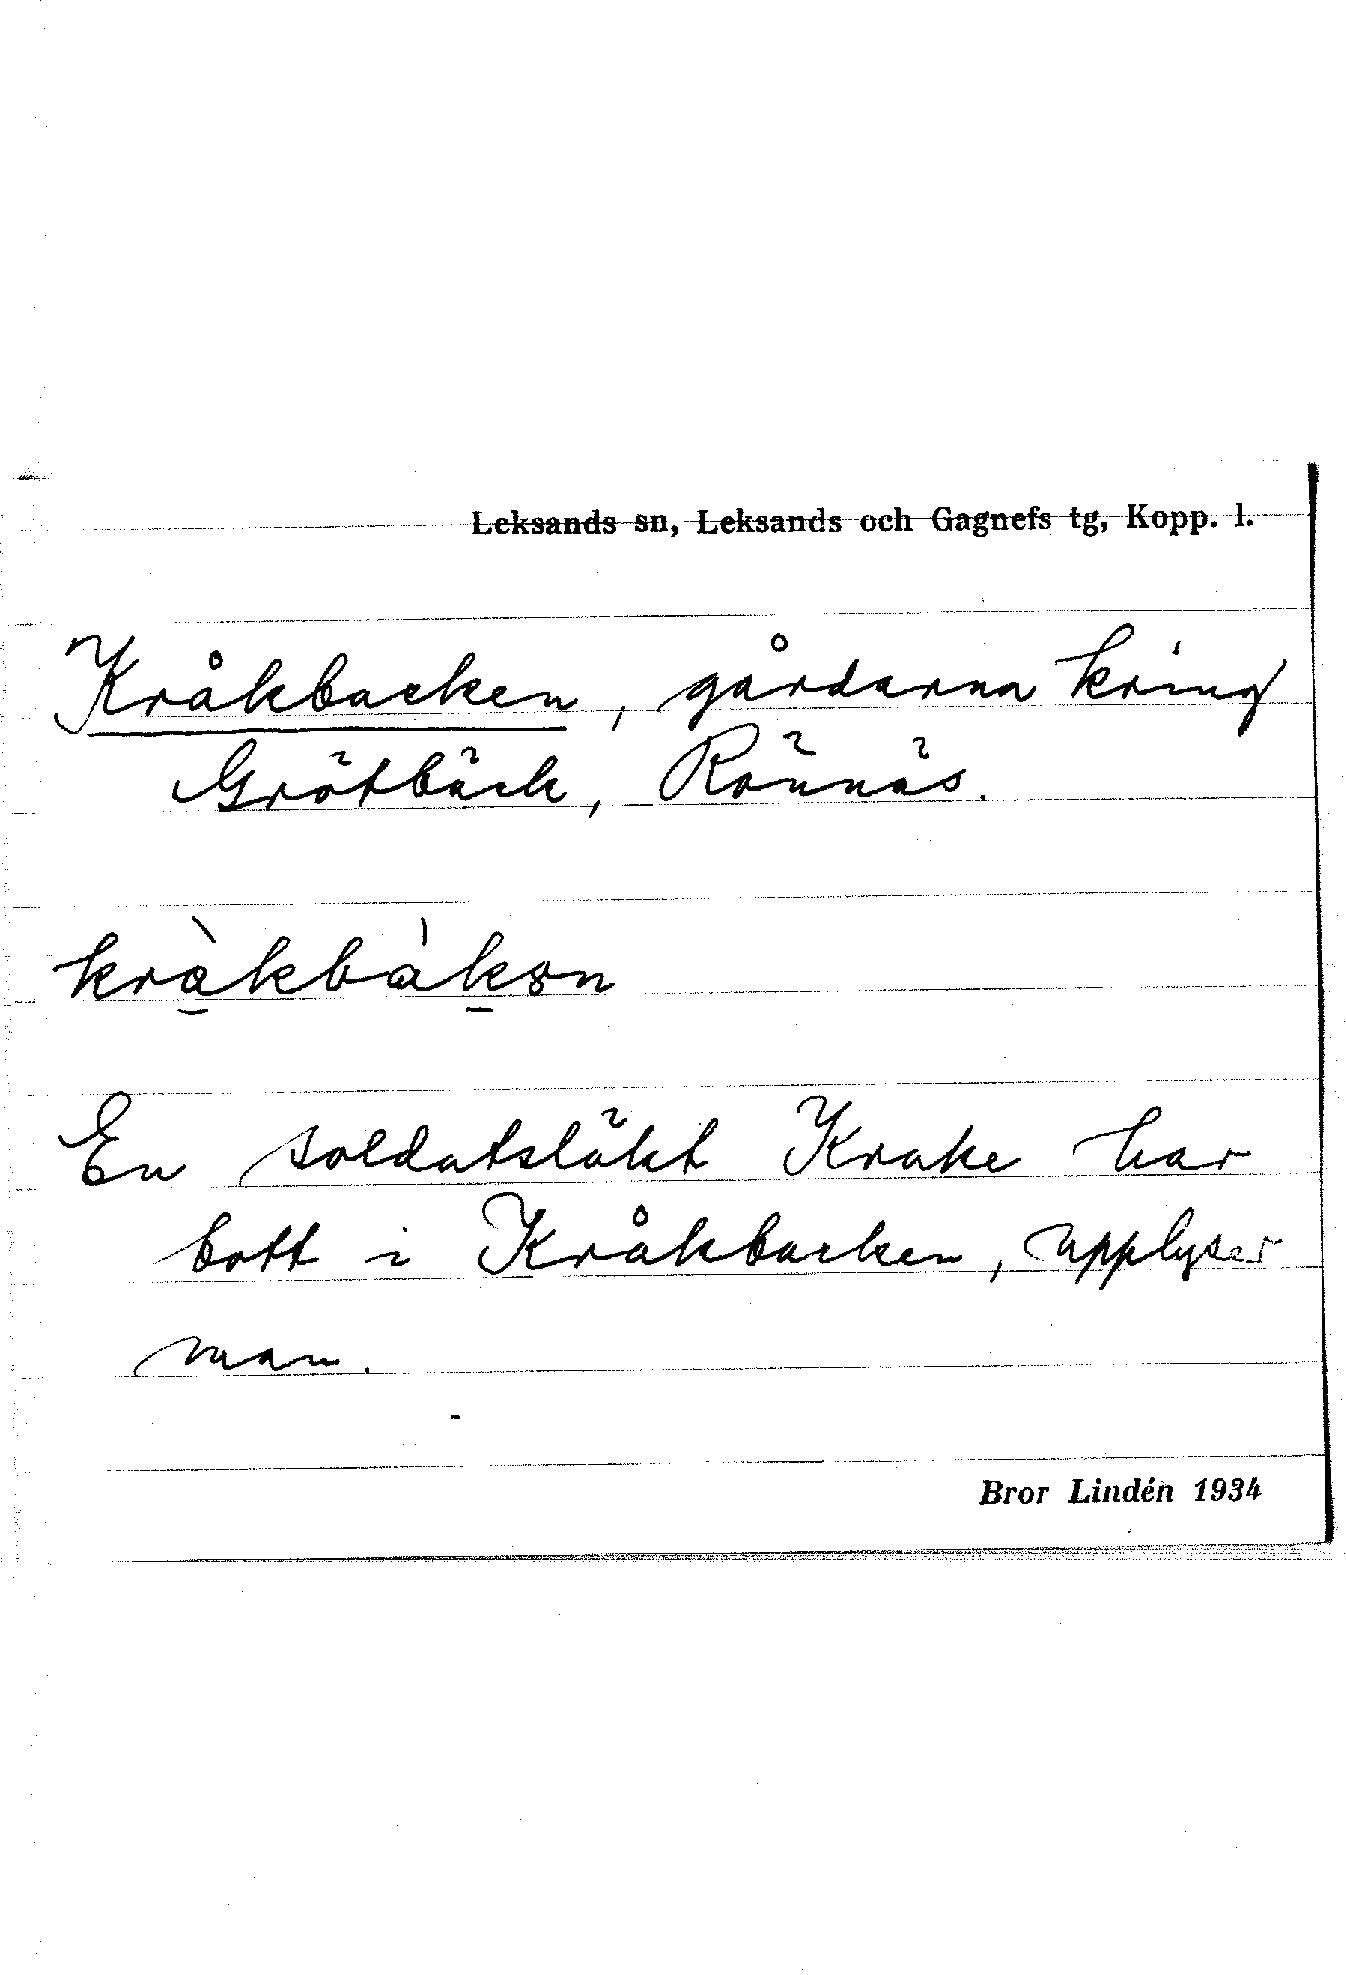 Leksands sn, Leksands och Gagnefs tg, Kopp. l.
Kråkbacken, gårdarna kring
Grötbäck, Rönnäs.
kràkbàkən
En soldatsläkt Krake har
bott i Kråkbacken, upplyser
man.
Bror Lindén 1934